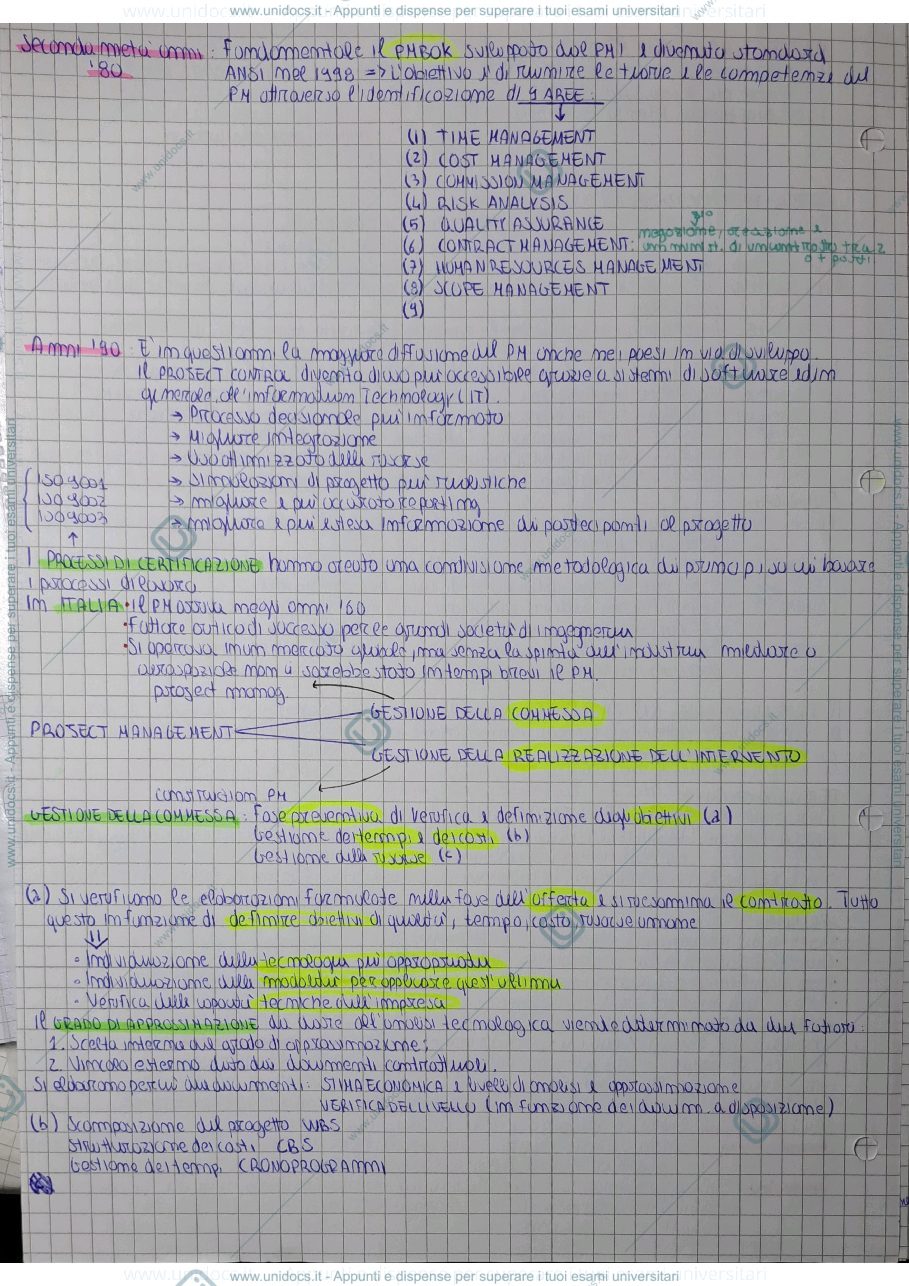 www.unidocs.it - Appunti e dispense per superare i tuoi esami universitari
Seconda metà anni '80 : Fondamentale il PMBOK sviluppato dal PMI e divenuto standard
ANSI nel 1998 => L'obiettivo è di riunire le teorie e le competenze del
PM attraverso l'identificazione di 9 AREE:
(1) TIME MANAGEMENT
(2) COST MANAGEMENT
(3) COMMISSION MANAGEMENT
(4) RISK ANALYSIS
(5) QUALITY ASSURANCE
(6) CONTRACT MANAGEMENT: negoziazione, creazione e amminist. di un contratto tra 2 o + parti
(7) HUMAN RESOURCES MANAGEMENT
(8) SCOPE MANAGEMENT
(9)
Anni '90 : E' in questi anni la maggiore diffusione del PM anche nei paesi in via di sviluppo.
Il PROJECT CONTROL diventa di uso più accessibile grazie a sistemi di software ed in
generale all'Information Technology (IT).
→ Processo decisionale più informato
→ Migliore integrazione
→ Uso ottimizzato delle risorse
→ Simulazioni di progetto più realistiche
→ migliore e più accurato reporting
→ migliore e più estesa informazione dei partecipanti al progetto
ISO 9001
ISO 9002
ISO 9003
I PROCESSI DI CERTIFICAZIONE hanno creato una condivisione metodologica dei principi su cui basare
i processi di lavoro
In ITALIA • il PM arriva negli anni '60
• Fattore critico di successo per le grandi società di ingegneria
• Si operava in un mercato globale, ma senza la spinta dell'industria nucleare o
aerospaziale non ci sarebbe stato in tempi brevi il PM.
project manag
GESTIONE DELLA COMMESSA
PROJECT MANAGEMENT
GESTIONE DELLA REALIZZAZIONE DELL'INTERVENTO
construction PM
GESTIONE DELLA COMMESSA : Fase preventiva di verifica e definizione degli obiettivi (a)
Gestione dei tempi e dei costi (b)
Gestione delle risorse (c)
(a) Si verificano le elaborazioni formulate nella fase dell'offerta e si riesamina il contratto. Tutto
questo in funzione di definire obiettivi di qualità, tempo, costo, risorse umane
• Individuazione della tecnologia più appropriata
• Individuazione delle modalità per applicare quest'ultima
• Verifica delle capacità tecniche dell'impresa
Il GRADO DI APPROSSIMAZIONE da dare all'analisi tecnologica viene determinato da due fattori:
1. Scelta interna del grado di approssimazione;
2. Vincolo esterno dato dai documenti contrattuali.
Si elaborano perciò due documenti: STIMA ECONOMICA e livelli di analisi e approssimazione
VERIFICA DEL LIVELLO (in funzione dei docum. a disposizione)
(b) Scomposizione del progetto WBS
Strutturazione dei costi CBS
Gestione dei tempi CRONOPROGRAMMI
www.unidocs.it - Appunti e dispense per superare i tuoi esami universitari